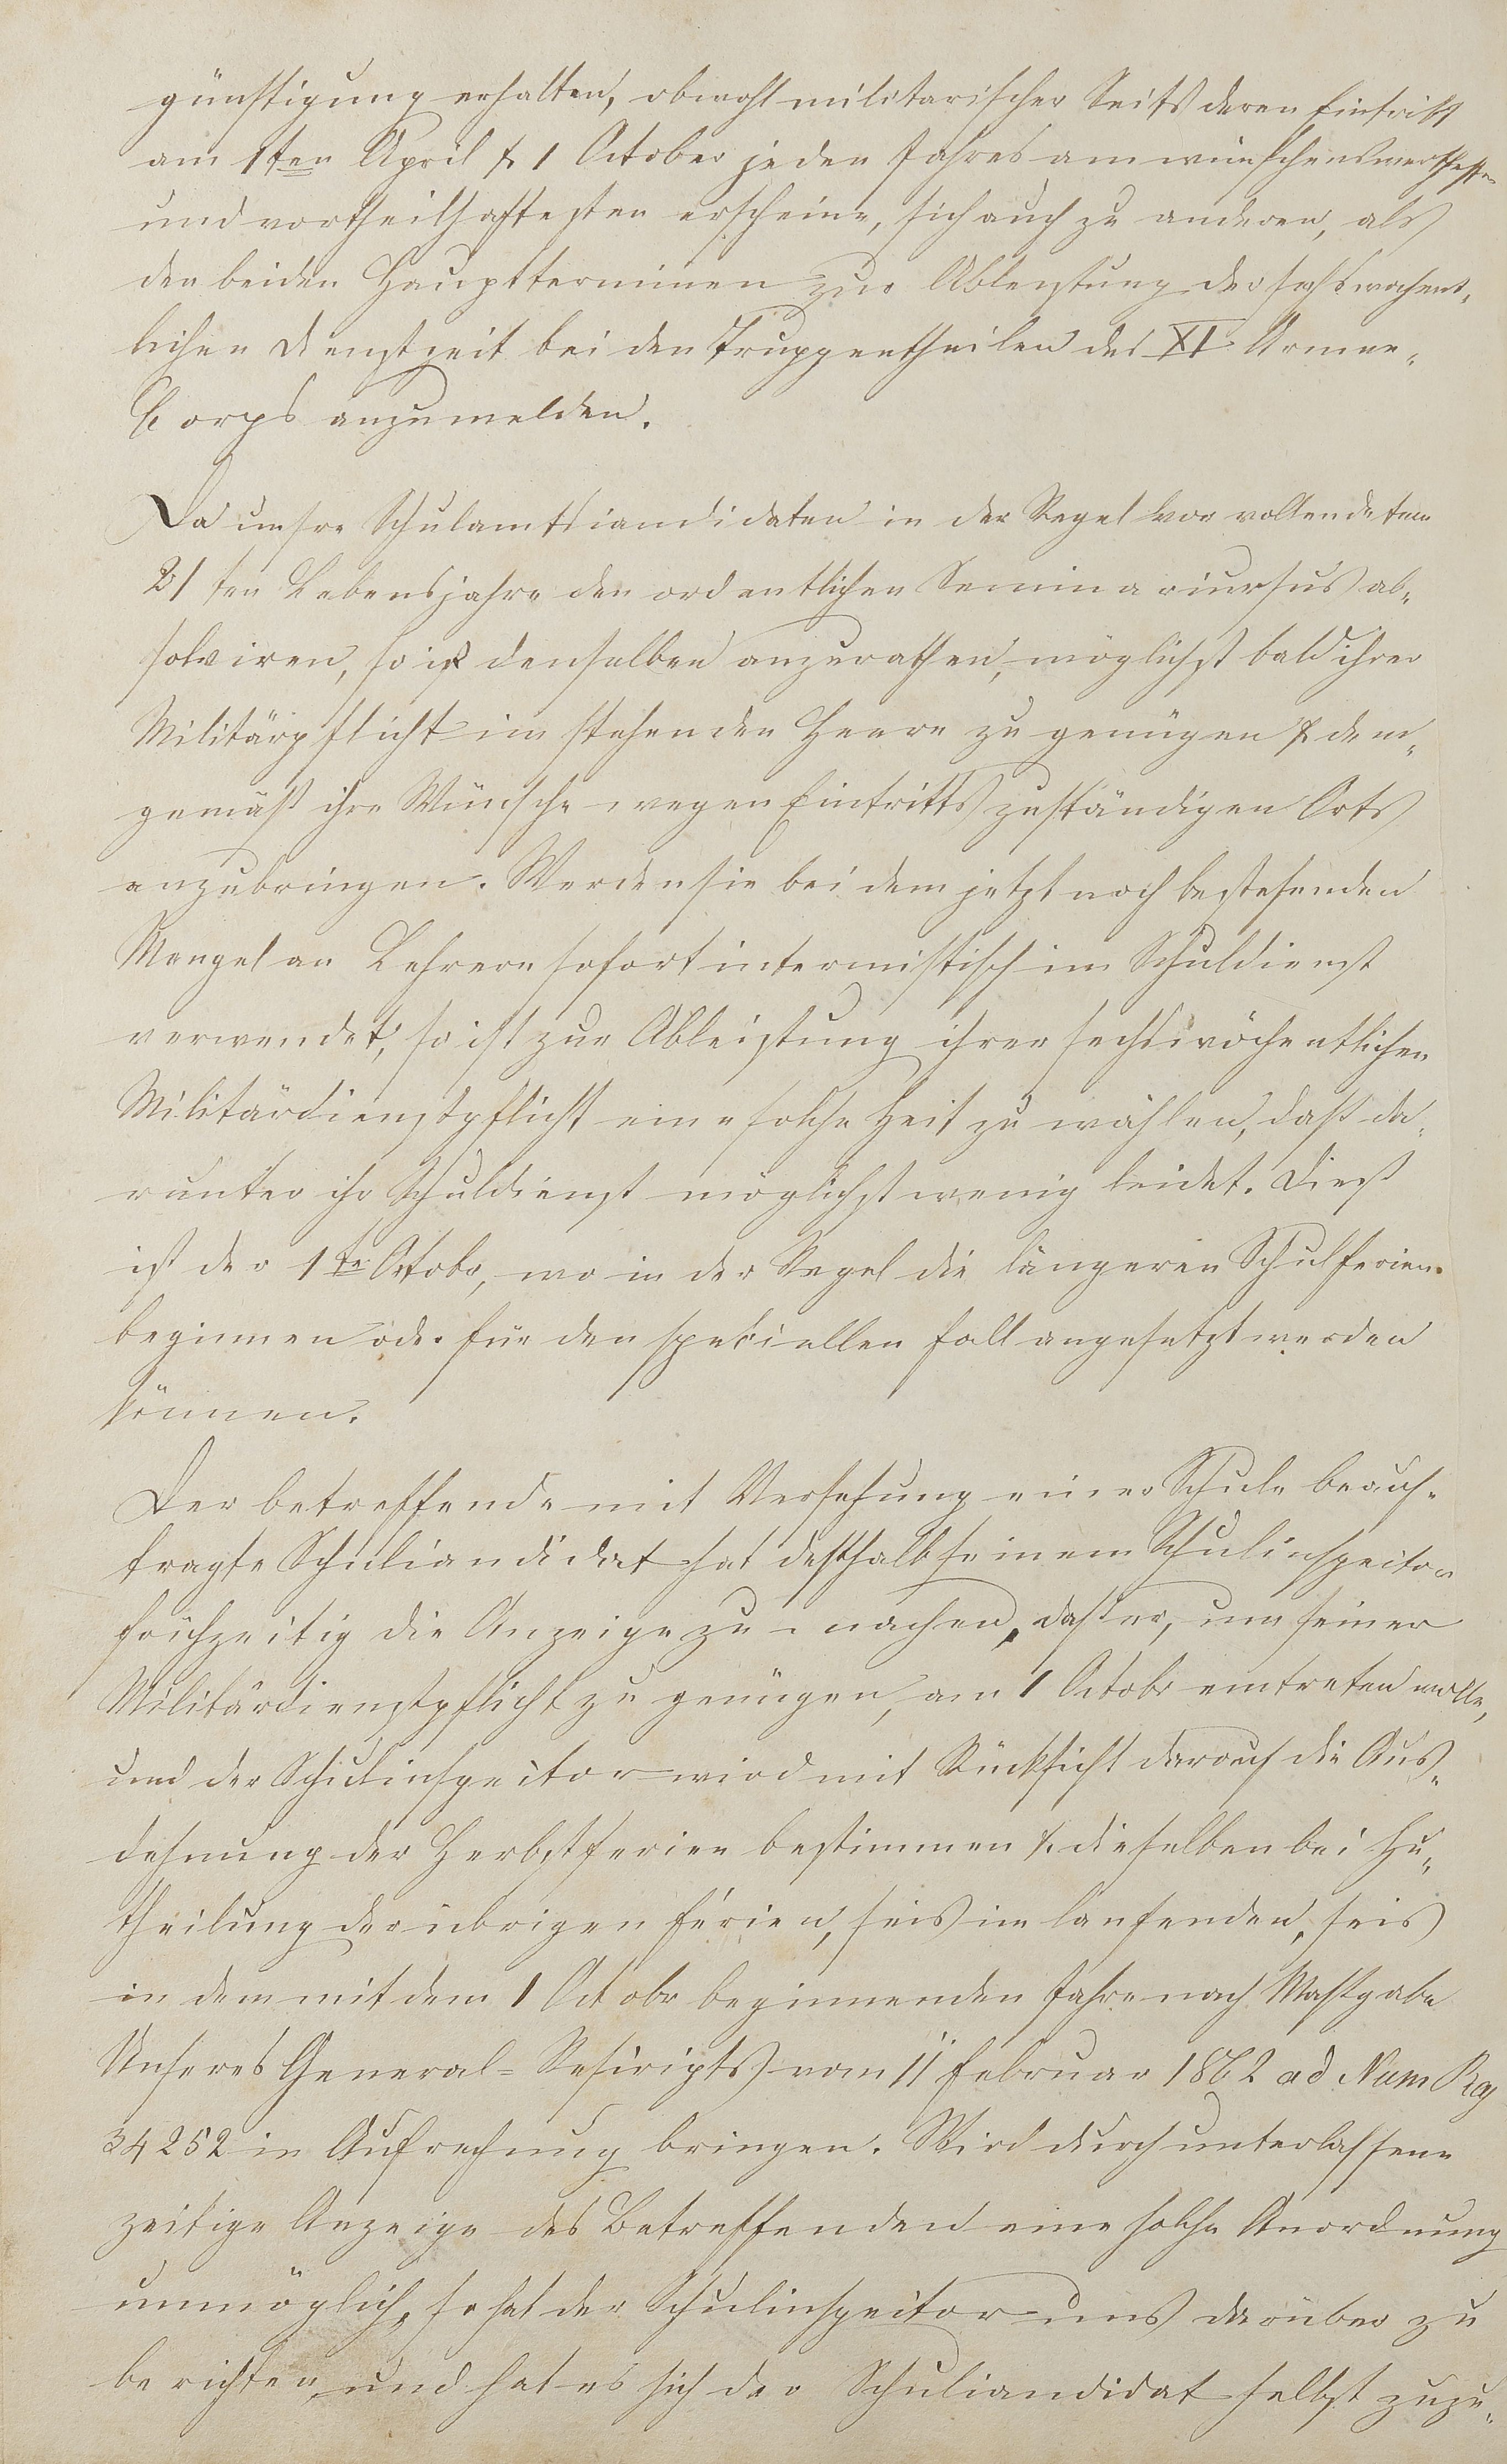 günstigung erhalten, obwohl militarischer Seits deren Eintritt
am 1ten April & 1 October jeden Jahres am wünschenswerthesten
und vortheilhaftesten erscheine, sich auch zu anderen, als
den beiden Hauptterminen zur Ableistung der sechswochent„
lichen Dienstzeit bei den Truppentheilen des XI Armee„
Corps anzumelden.
Da unsre Schulamtscandidaten in der Regel vor vollendetem
21 ten Lebensjahre den ordentlichen Seminarcursus ab„
solviren, so ist denselben anzurathen, möglichst bald ihrer
Militärpflicht im stehenden Heere zu genügen & dem„
gemäß ihre Wünsche wegen Eintritts zuständigen Orts
anzubringen. Werden sie bei dem jetzt noch bestehenden
Mangel an Lehrern sofort intermistisch im Schuldienst
verwendet, so ist zur Ableistung ihrer sechswöchentlichen
Militärdienstpflicht eine solche Zeit zu wählen, daß da„
runter ihr Schuldienst möglichst wenig leidet. Dieß
ist der 1te Octobr, wo in der Regel die längeren Schulferien
beginnen oder für den speciellen Fall angesetzt werden
können.
Der betreffende mit Versehung einer Schule beauf„
tragte Schulcandidat hat deßhalb seinem Schulinspector
frühzeitig die Anzeige zu machen, daß er, um seiner
Militärdienstpflicht zu genügen, am 1 Octobr eintreten wolle,
und der Schulinspector wird mit Rücksicht darauf die Aus„
dehnung der Herbstferien bestimmen & dieselben bei Zu„
theilung der übrigen Ferien, seis im laufenden, seis
in dem mit dem 1 Octobr beginnenden Jahre nach Maßgabe
Unseres General-Rescripts vom 11 Februar 1862 ad Num Rg
34252 in Aufrechnung bringen. Wird durch unterlassene
zeitige Anzeige des Betreffenden eine solche Anordnung
unmöglich, so hat der Schulinspector uns darüber zu
berichten und hat es sich der Schulcandidat selbst zuzu„